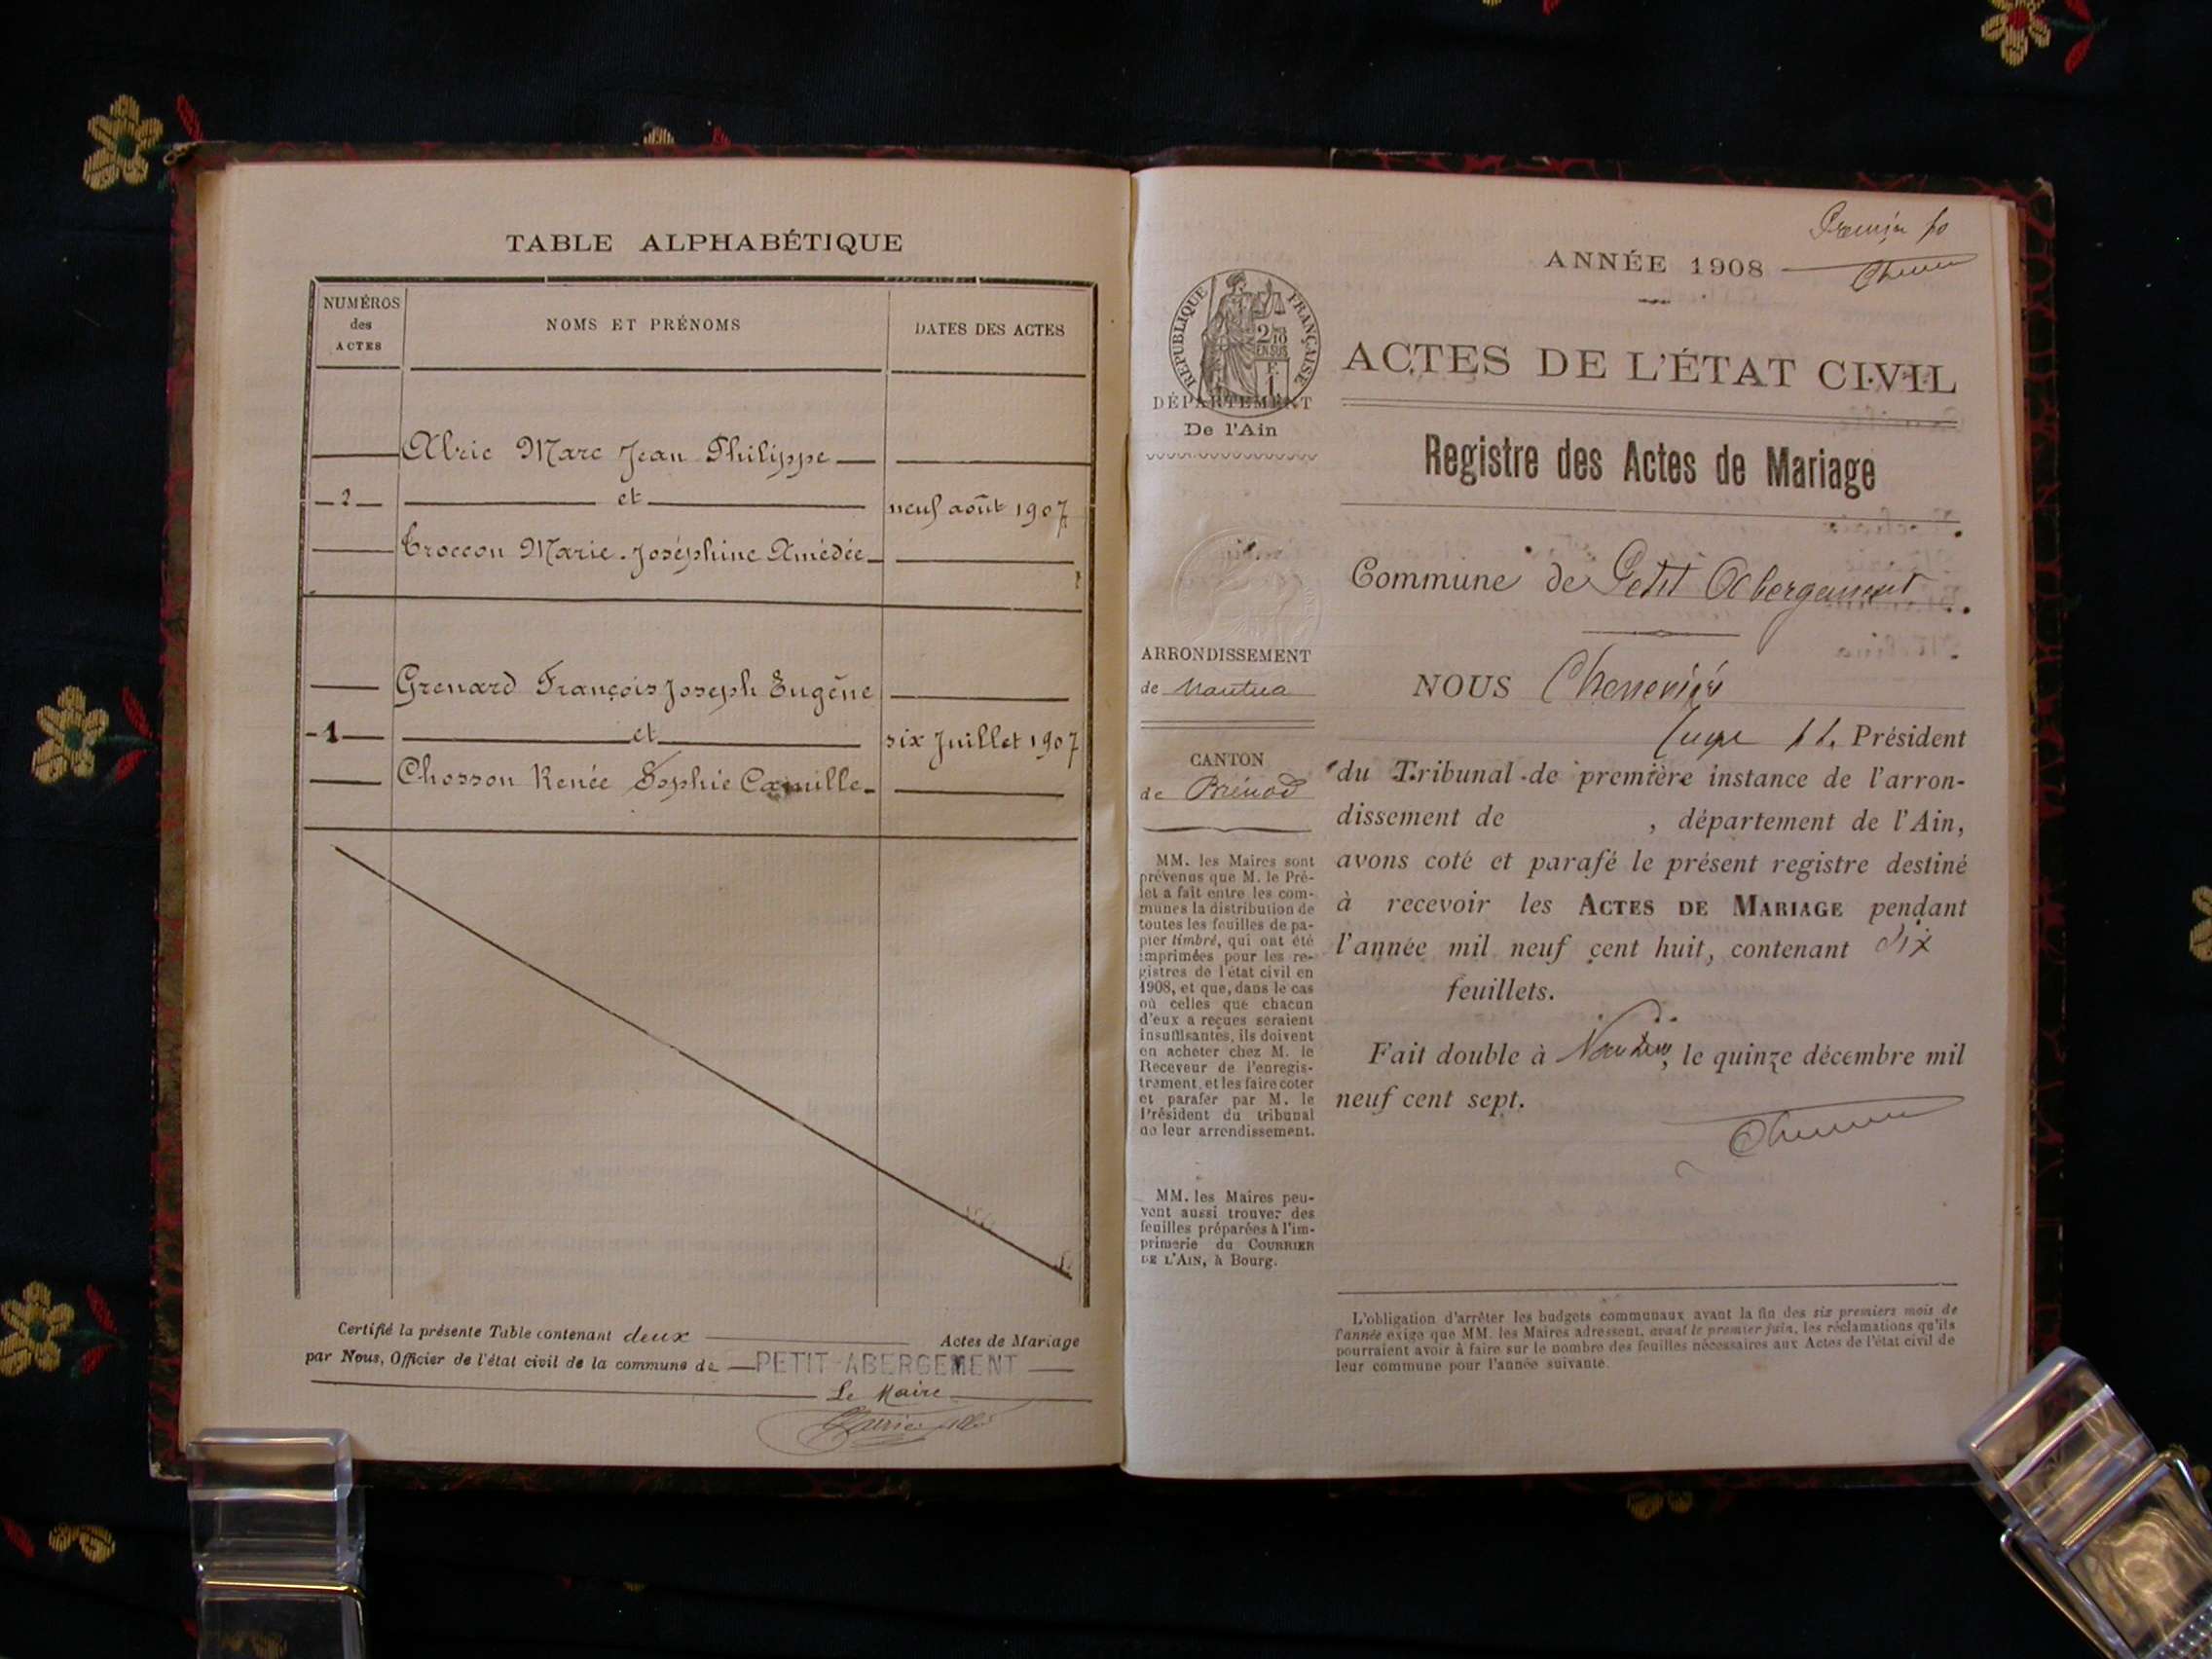 TABLE ALPHABÉTIQUE
NUMÉROS
des
ACTES
NOMS ET PRÉNOMS
DATES DES ACTES
Abric Marc Jean Philippe
2 et neuf août 1907
Croccon Marie-Joséphine Amédée
Grenard François Joseph Eugène
1 et six Juillet 1907
Chosson Renée Sophie Camille
Certifié la présente Table contenant deux Actes de Mariage
par Nous, Officier de l'état civil de la commune de PETIT-ABERGEMENT
Le Maire
Premier fo
ANNÉE 1908
RÉPUBLIQUE FRANÇAISE
2/10
EN SUS
F.
1
ACTES DE L'ÉTAT CIVIL
DÉPARTEMENT
De l'Ain
Registre des Actes de Mariage
Commune de Petit Abergement
ARRONDISSEMENT
de Nantua
CANTON
de Brénod
MM. les Maires sont
prévenus que M. le Pré-
fet a fait entre les com-
munes la distribution de
toutes les feuilles de pa-
pier timbré, qui ont été
imprimées pour les re-
gistres de l'état civil en
1908, et que, dans le cas
où celles que chacun
d'eux a reçues seraient
insuffisantes, ils doivent
en acheter chez M. le
Receveur de l'enregis-
trement, et les faire coter
et parafer par M. le
Président du tribunal
de leur arrondissement.
MM. les Maires peu-
vent aussi trouver des
feuilles préparées à l'im-
primerie du COURRIER
DE L'AIN, à Bourg.
NOUS
Juge Président
du Tribunal de première instance de l'arron-
dissement de , département de l'Ain,
avons coté et parafé le présent registre destiné
à recevoir les ACTES DE MARIAGE pendant
l'année mil neuf cent huit, contenant dix
feuillets.
Fait double à Nantua, le quinze décembre mil
neuf cent sept.
L'obligation d'arrêter les budgets communaux avant la fin des six premiers mois de
l'année exige que MM. les Maires adressent, avant le premier juin, les réclamations qu'ils
pourraient avoir à faire sur le nombre des feuilles nécessaires aux Actes de l'état civil de
leur commune pour l'année suivante.